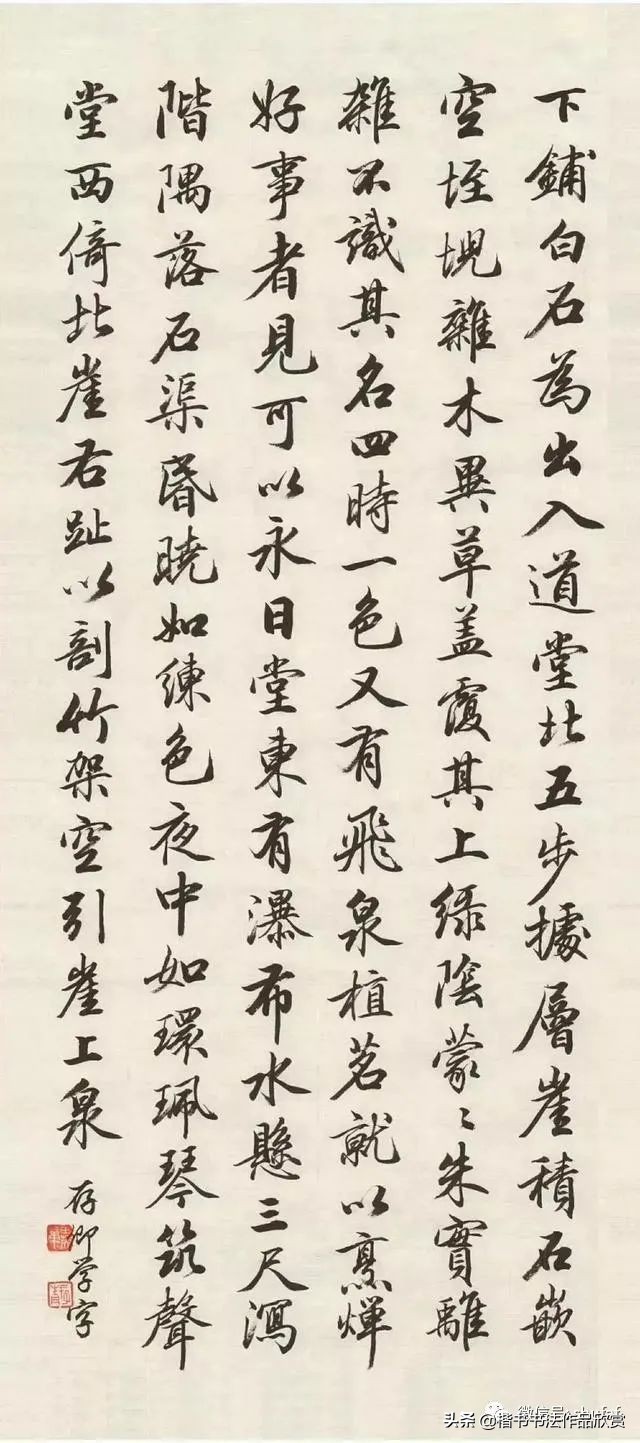 下鋪白石為出入道堂北五步據層崖積石嵌
空垤堄雜木異草盖覆其上綠陰蒙〻朱實離
雜不識其名四時一色又有飛泉植茗就以烹燀
好事者見可以永日堂東有瀑布水懸三尺瀉
階隅落石渠昏曉如練色夜中如環珮琴筑聲
堂西倚北崖右趾以剖竹架空引崖上泉
存卿学字
头条@楷书书法作品欣赏